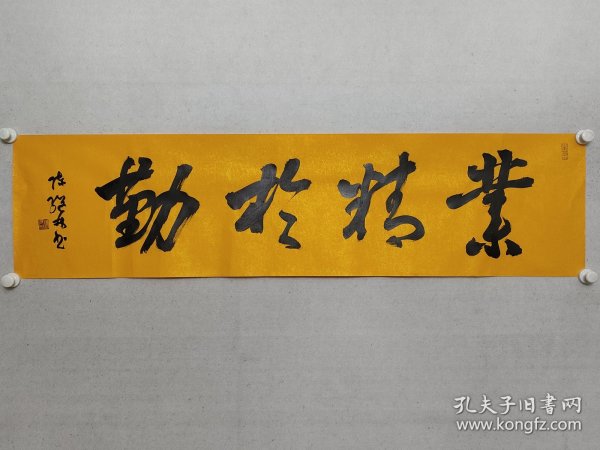 業精於勤
孔夫子旧書网
www.kongfz.com